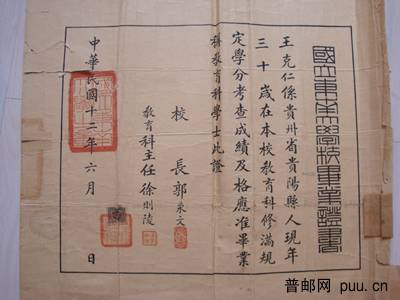 國立東南大學校畢業證書
王克仁係貴州省貴陽縣人現年
三十歲在本校教育科修滿規
定學分考查成績及格應准畢業
稱教育科學士此證
校長郭秉文
教育科主任徐則陵
中華民國十二年六月 日
普邮网 puu.cn